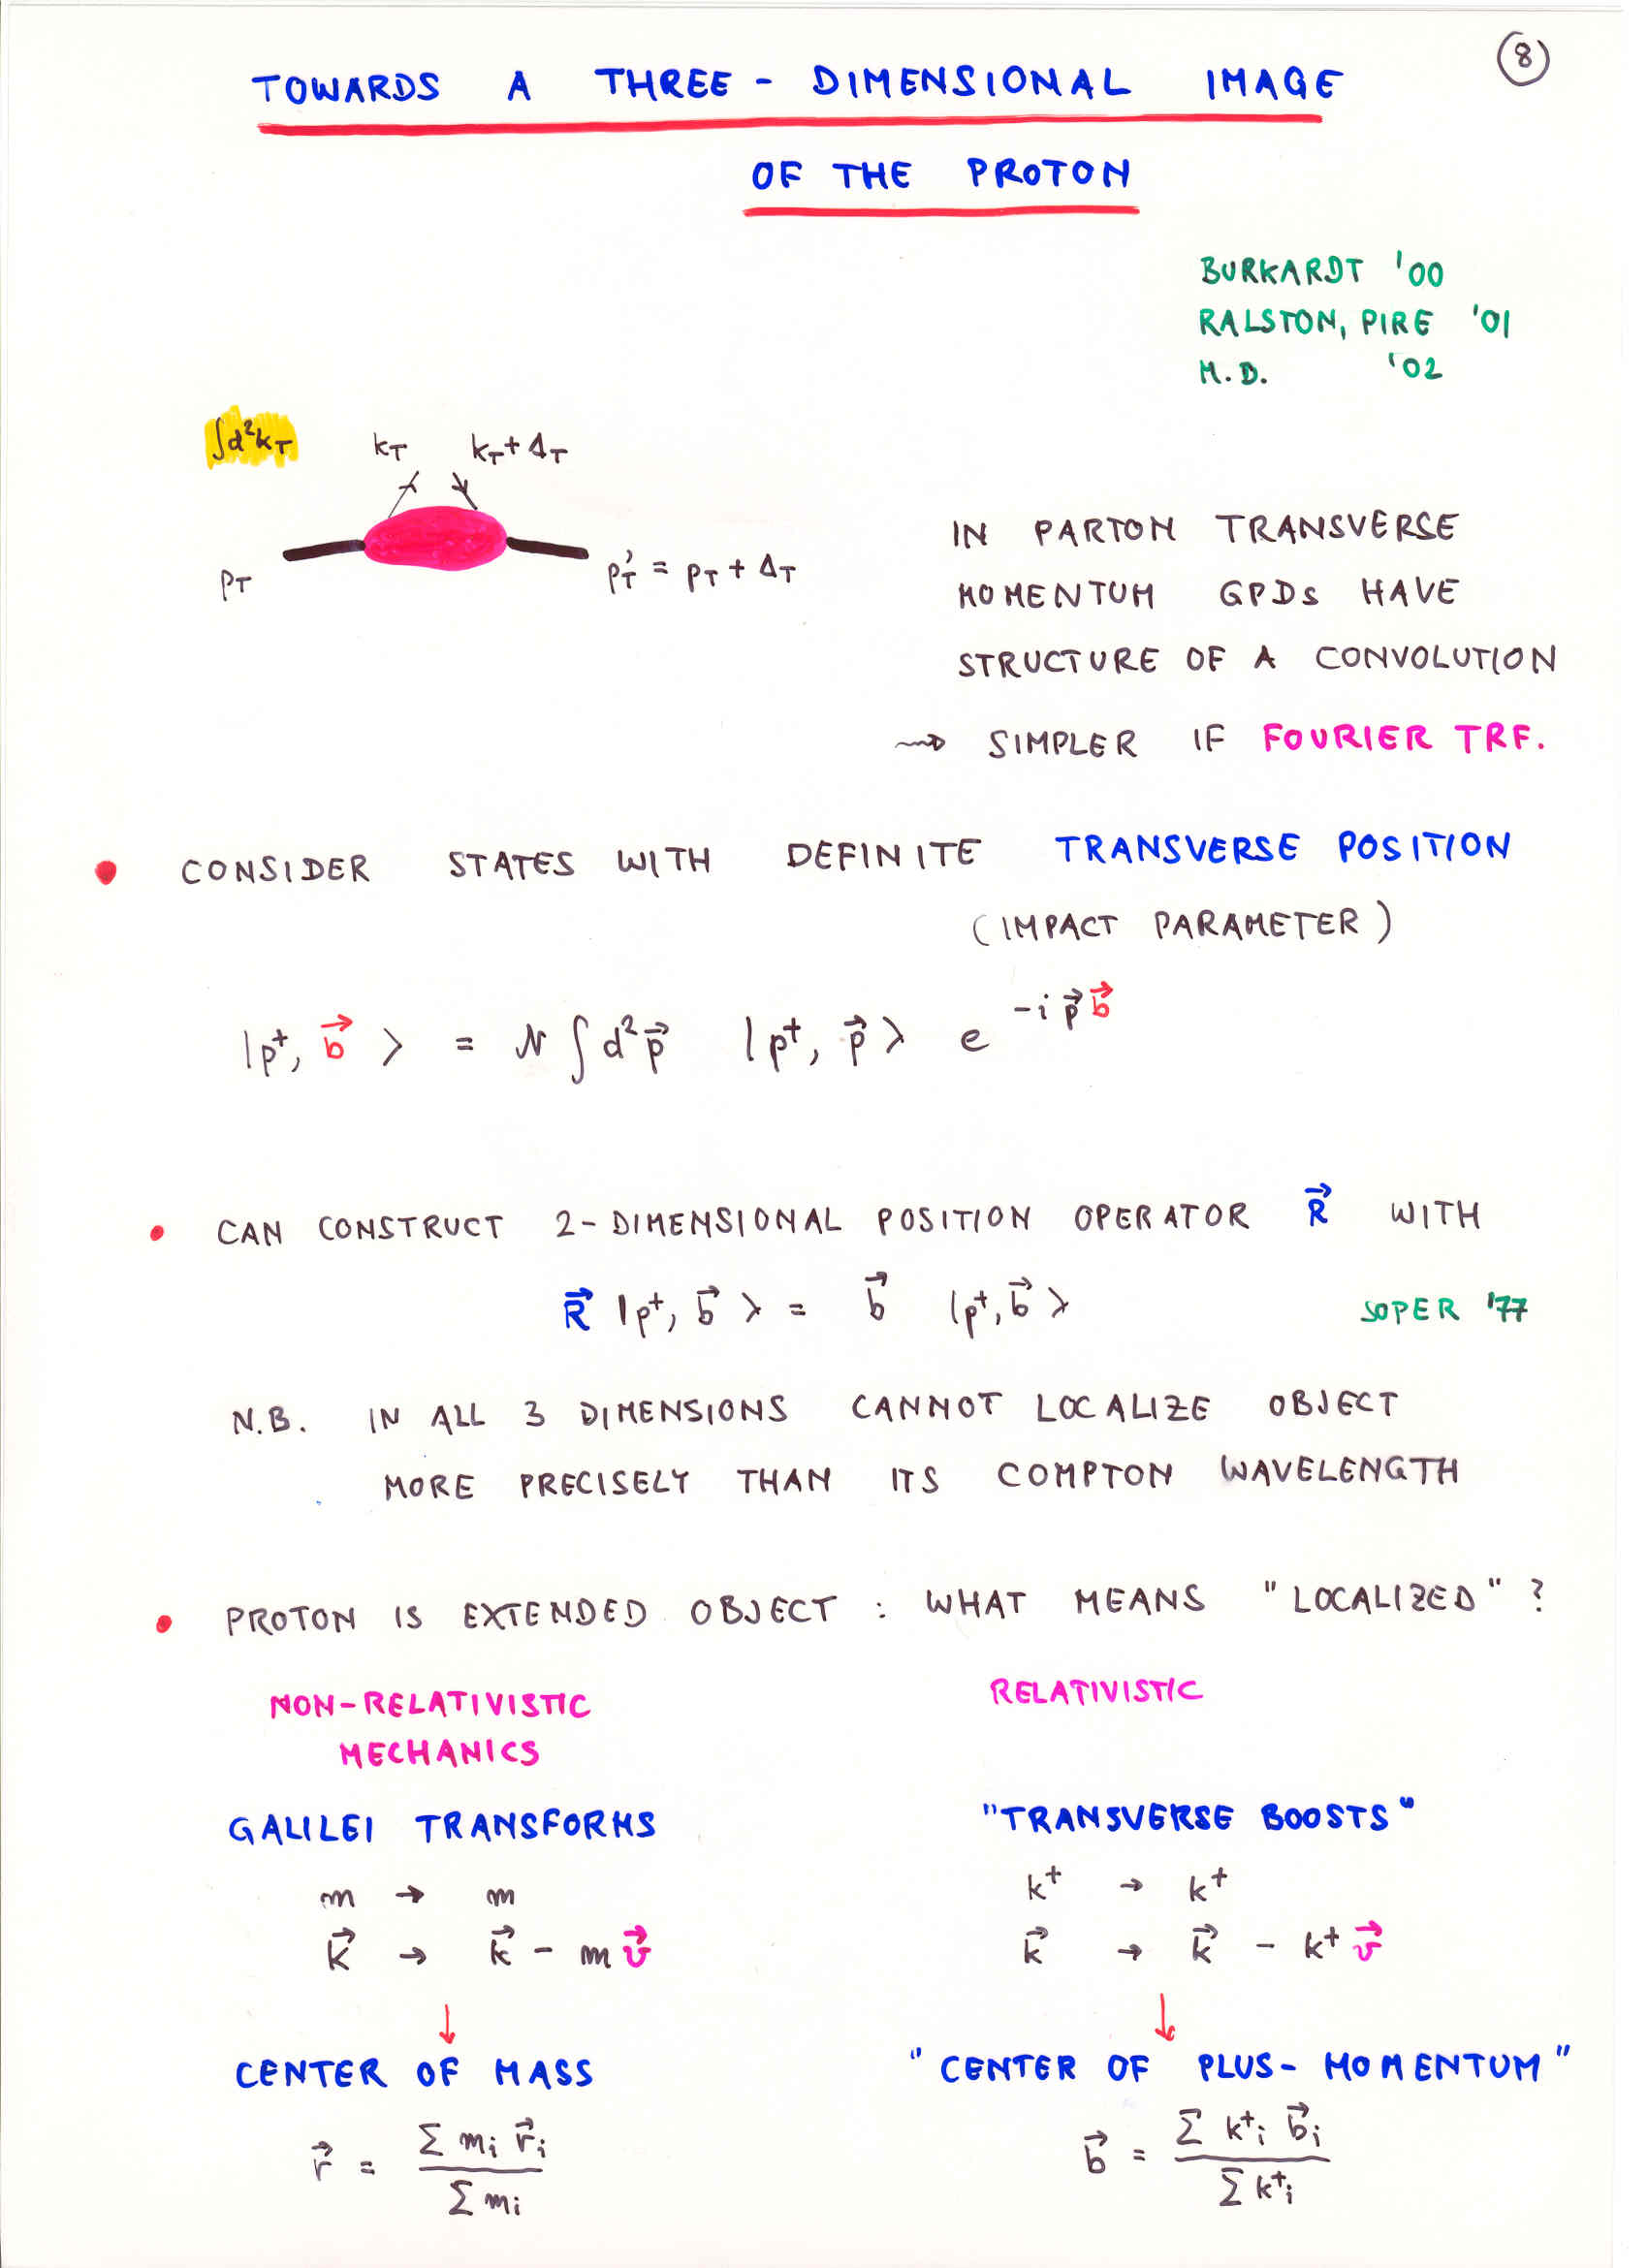 8
TOWARDS A THREE - DIMENSIONAL IMAGE
OF THE PROTON
BURKARDT '00
RALSTON, PIRE '01
M.D. '02
∫d²k_T k_T k_T + Δ_T
p_T p'_T = p_T + Δ_T
IN PARTON TRANSVERSE
MOMENTUM GPDs HAVE
STRUCTURE OF A CONVOLUTION
⇝ SIMPLER IF FOURIER TRF.
• CONSIDER STATES WITH DEFINITE TRANSVERSE POSITION
(IMPACT PARAMETER)
|p⁺, b⃗ ⟩ = N ∫ d²p⃗ |p⁺, p⃗ ⟩ e^{-i p⃗ b⃗}
• CAN CONSTRUCT 2-DIMENSIONAL POSITION OPERATOR R⃗ WITH
R⃗ |p⁺, b⃗ ⟩ = b⃗ |p⁺, b⃗ ⟩ SOPER '77
N.B. IN ALL 3 DIMENSIONS CANNOT LOCALIZE OBJECT
MORE PRECISELY THAN ITS COMPTON WAVELENGTH
• PROTON IS EXTENDED OBJECT : WHAT MEANS "LOCALIZED" ?
NON-RELATIVISTIC
MECHANICS
GALILEI TRANSFORMS
m → m
k⃗ → k⃗ - m v⃗
↓
CENTER OF MASS
r⃗ = Σ mᵢ r⃗ᵢ / Σ mᵢ
RELATIVISTIC
"TRANSVERSE BOOSTS"
k⁺ → k⁺
k⃗ → k⃗ - k⁺ v⃗
↓
"CENTER OF PLUS-MOMENTUM"
b⃗ = Σ k⁺ᵢ b⃗ᵢ / Σ k⁺ᵢ